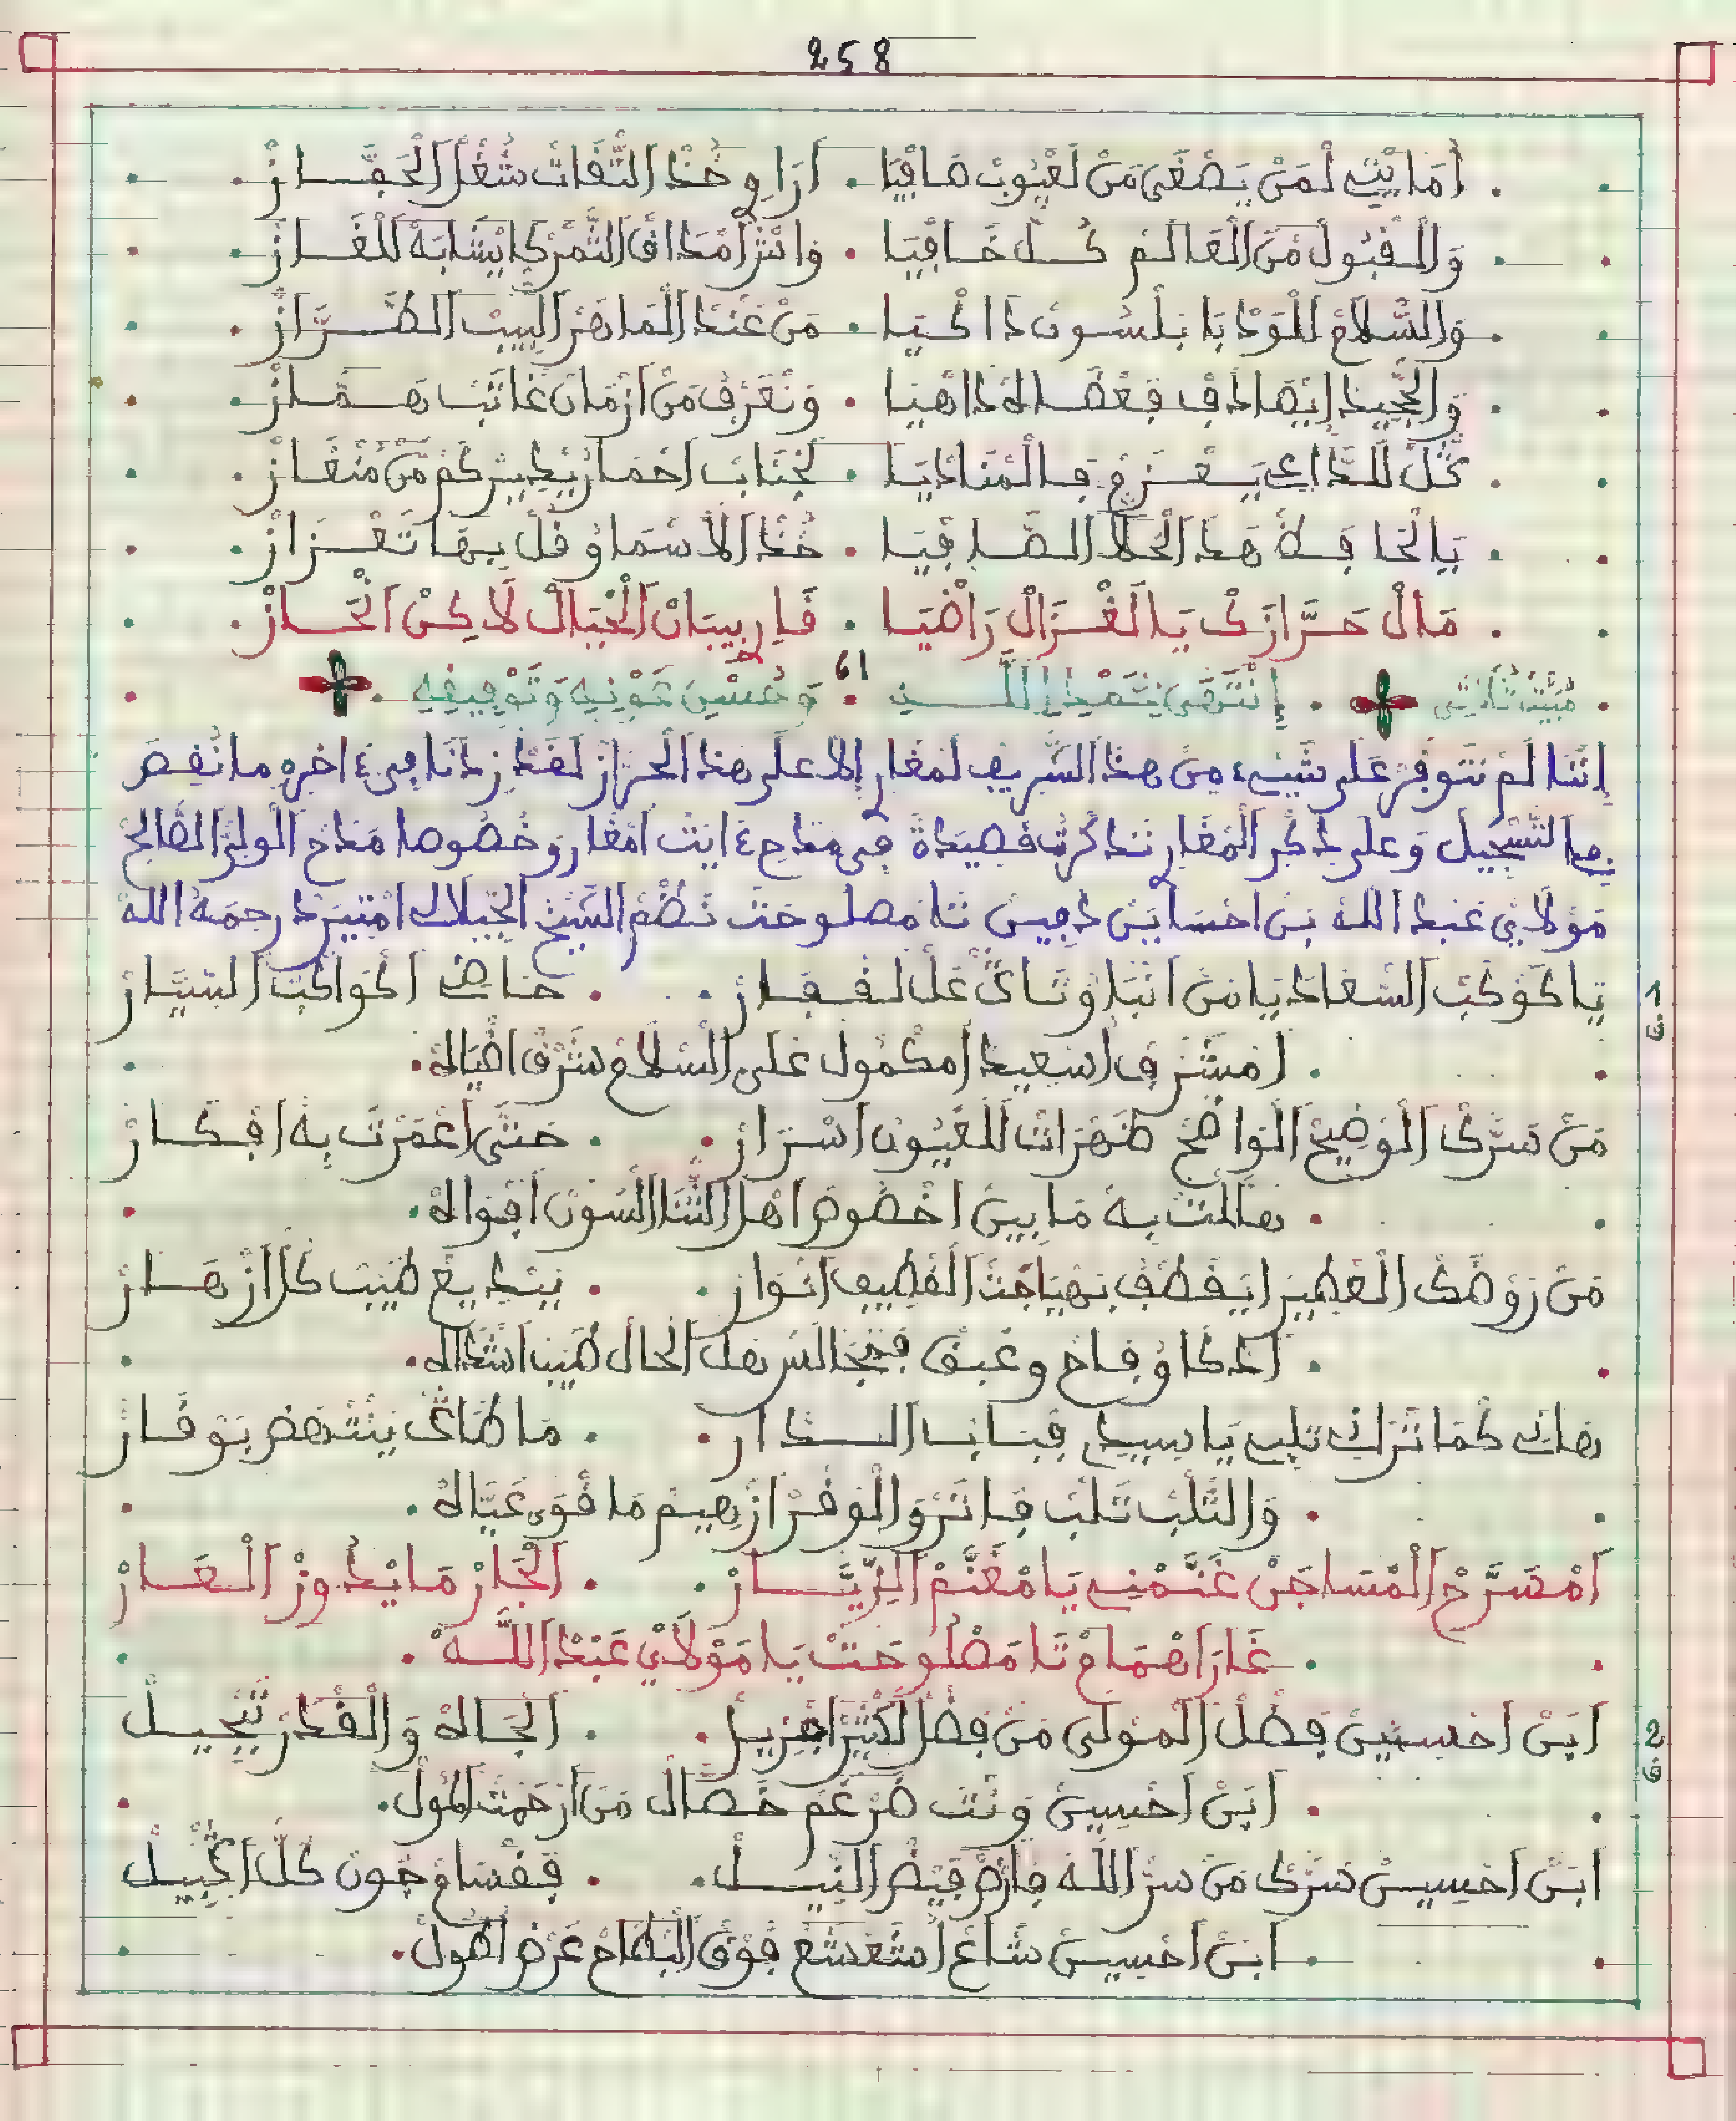 258
أمانتي لمن يصغى من لعيوب صافيا . أراوي خذ التفات شغل الحفاز
والمقبول من العالم كل خافيا . وانثر أمداق الثمر كايتشابه للغاز
والسلام للودبا بلسون ذاكيا . من عند الماهر اللبيب الطراز
والجيد إيصادف فعضاله ذاهيا . ونعرف من ازمان عاتب همماز
كل للداعي يفزع فالمناديا . لجناب احمار يطير كم من منغاز
يالحافظ هذ الحلا الصافيا . خذ الأسماو قل بها تعزاز
مال حرازك يا لغزال راضيا . قاري بيبان الحيال لاكن انحاز
مبيته ثلاثي . إنتهى بحمد الله . وحسن عونه وتوفيقه
61
إننا لم نتوفر على شيء من هذ الشريف لمغاري إلا على هذ الحراز لقد زدنا في ءاخره ما نقص
في التسجيل وعلى ذكر المغاري تذكرت قصيدة في مدح ءايت امغار وخصوصا مدح الولي الصالح
مولاي عبد الله بن احساين دفين تامصلوحت نظم الشيخ الجيلالي امتيرد رحمه الله
1
ق
يا كوكب السعاد يا من انبا وتاك عل لقفار . حناض الكواكب السيار
. امشرف اسعيد امكمول على السلام شرق اضياله
من سرك الوضيح الواضح ظهرات للعيون اسرار . حتى اعمرت به افكار
. هاللت به ما بين اخصوص اهل الثنا السون اقواله
من روضك العطير ايقطف بهياجت القطيف انوار . ببديع طيب كل ازهار
. اذكا وفاح وعبق فنجالس هل الحال طيب اشذاله
هاك كما نراك تلب يا سيدي فبابا الدار . ما طاك ينتهض بوقار
. والتلب تلب فاتر والوفر ازهيم ما قوى عياله
أمصرح المساجن غنمني يا مغنم الزيار . الجار ما يدوز العار
. غارا همام تامصلوحت يا مولاي عبد الله
2
ق
ابن احسين فضل المولى من فضل لكثير اهزيل . الجاه والقدر تبجيل
. ابن احسين ونت ضرغم خصال من ارحمت المول
ابن احسين سرك من سر الله فارض فيض النيل . فقسام جون كل اجبيل
. ابن احسين شاع امشعشع فوق البطاح عرض اطول